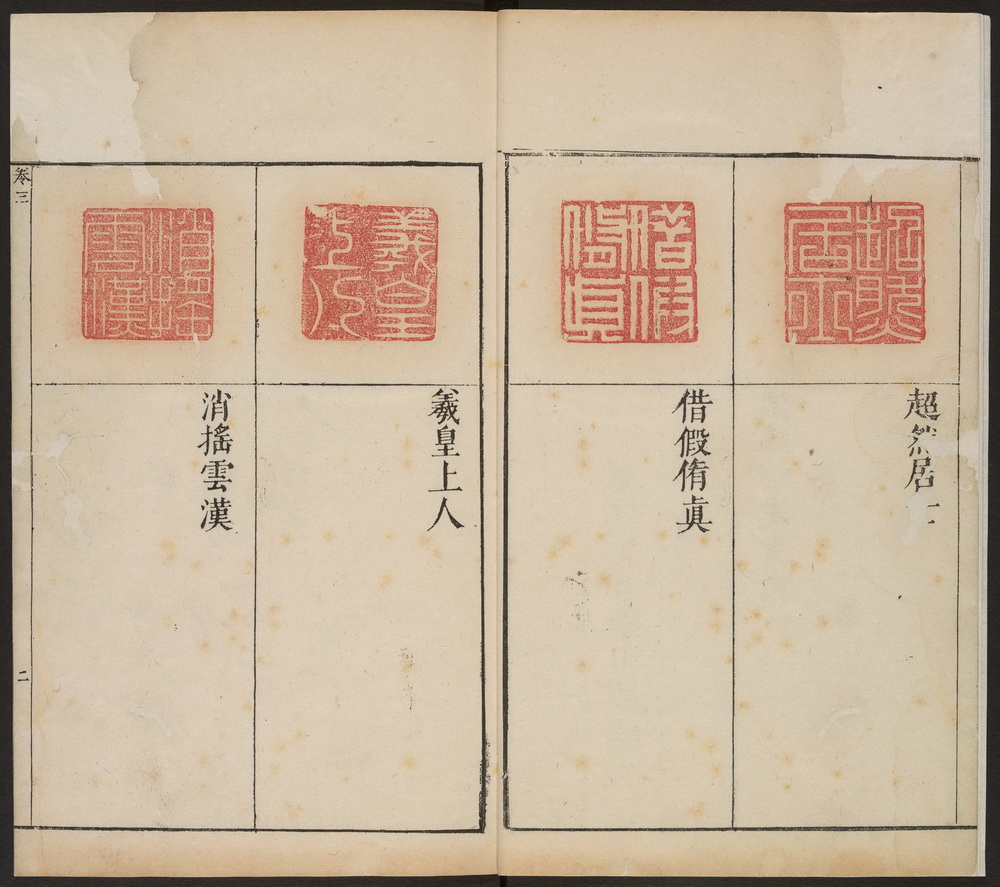 超然居士
借假脩眞
羲皇上人
消搖雲漢
卷三
二